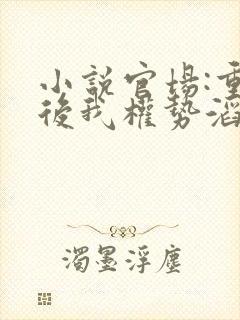 小説官場:重
後我權勢滔
濁墨浮塵